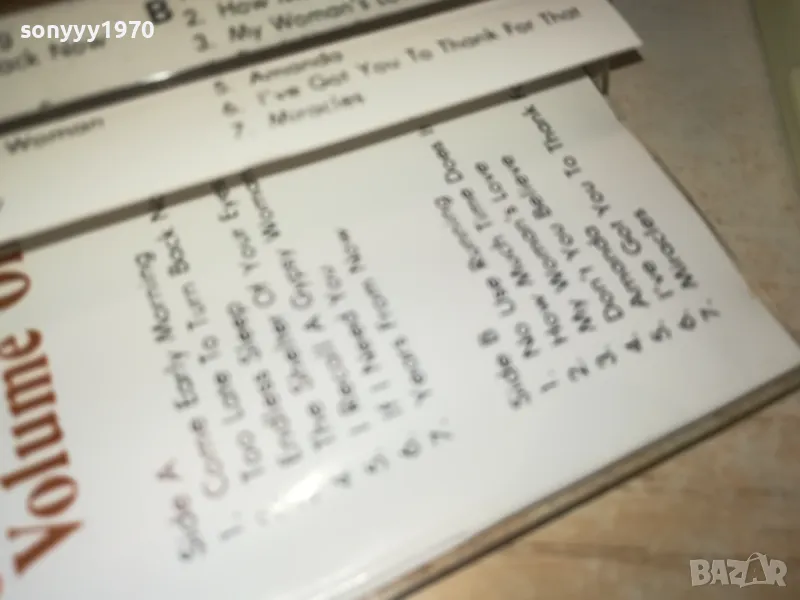 sonyyy1970
B
2. How
3. My Woman's Lo
ack Now
5. Amanda
6. I've Got You To Thank For That
7. Miracles
Woman
Volume
Side A
1. Come Early Morning
Too Late To Turn Back N
Endless Sleep
4. The Shelter Of Your Eyes
5. I Recall A Gypsy Woman
6. If I Need You
7. Years From Now
Side B
1. No Use Running
2. How Much Time Does I
3. My Woman's Love
4. Don't You Believe
5. Amanda
6. I've Got You To Thank
7. Miracles
BAZAR